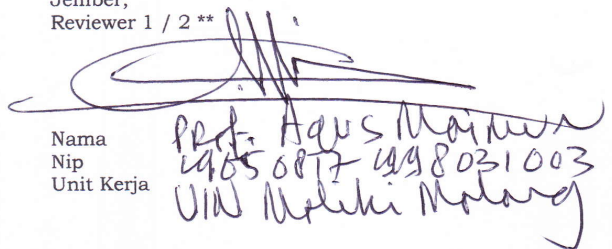 Jember,
Reviewer 1 / 2 **
Nama Prof. Agus Maimun
Nip 19650817 199803 1 003
Unit Kerja UIN Maliki Malang